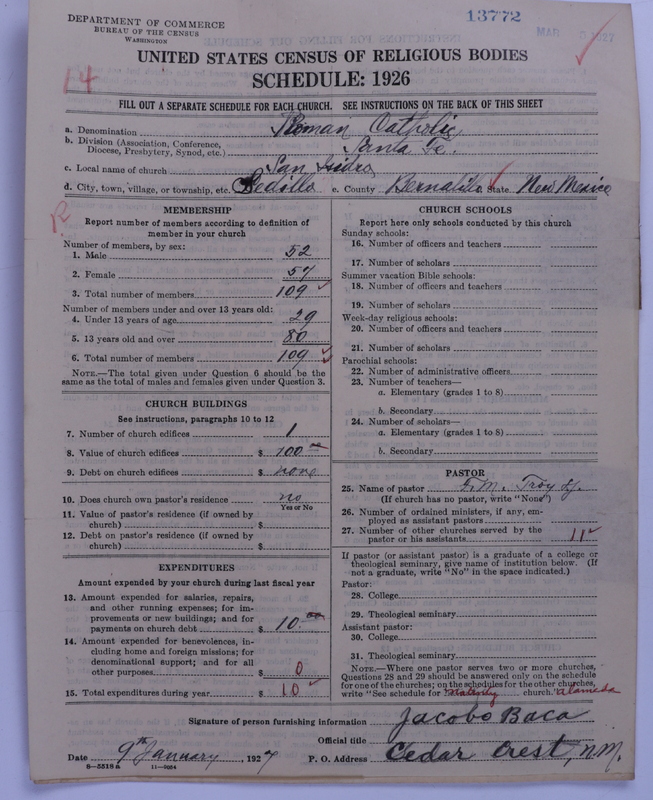 DEPARTMENT OF COMMERCE
BUREAU OF THE CENSUS
WASHINGTON
13772
MAR 5 1927
UNITED STATES CENSUS OF RELIGIOUS BODIES
14
SCHEDULE: 1926
FILL OUT A SEPARATE SCHEDULE FOR EACH CHURCH. SEE INSTRUCTIONS ON THE BACK OF THIS SHEET
a. Denomination Roman Catholic
b. Division (Association, Conference, Diocese, Presbytery, Synod, etc.) Santa Fe.
c. Local name of church San Isidro
d. City, town, village, or township, etc. Sedillo e. County Bernalillo State New Mexico
MEMBERSHIP
Report number of members according to definition of
member in your church
Number of members, by sex:
1. Male 52
2. Female 57
3. Total number of members 109
Number of members under and over 13 years old:
4. Under 13 years of age 29
5. 13 years old and over 80
6. Total number of members 109
NOTE.—The total given under Question 6 should be the
same as the total of males and females given under Question 3.
CHURCH BUILDINGS
See instructions, paragraphs 10 to 12
7. Number of church edifices 1
8. Value of church edifices $ 100 00
9. Debt on church edifices $ none
10. Does church own pastor's residence no
Yes or No
11. Value of pastor's residence (if owned by
church) $
12. Debt on pastor's residence (if owned by
church) $
EXPENDITURES
Amount expended by your church during last fiscal year
13. Amount expended for salaries, repairs,
and other running expenses; for im-
provements or new buildings; and for
payments on church debt $ 10 00
14. Amount expended for benevolences, in-
cluding home and foreign missions; for
denominational support; and for all
other purposes $ 0
15. Total expenditures during year $ 10
CHURCH SCHOOLS
Report here only schools conducted by this church
Sunday schools:
16. Number of officers and teachers
17. Number of scholars
Summer vacation Bible schools:
18. Number of officers and teachers
19. Number of scholars
Week-day religious schools:
20. Number of officers and teachers
21. Number of scholars
Parochial schools:
22. Number of administrative officers
23. Number of teachers—
a. Elementary (grades 1 to 8)
b. Secondary
24. Number of scholars—
a. Elementary (grades 1 to 8)
b. Secondary
PASTOR
25. Name of pastor F. M. Troy
(If church has no pastor, write "None")
26. Number of ordained ministers, if any, em-
ployed as assistant pastors
27. Number of other churches served by the
pastor or his assistants 11
If pastor (or assistant pastor) is a graduate of a college or
theological seminary, give name of institution below. (If
not a graduate, write "No" in the space indicated.)
Pastor:
28. College
29. Theological seminary
Assistant pastor:
30. College
31. Theological seminary
NOTE.—Where one pastor serves two or more churches,
Questions 28 and 29 should be answered only on the schedule
for one of the churches; on the schedules for the other churches,
write "See schedule for Nativity church." Alameda
Signature of person furnishing information Jacobo Baca
Official title
Date 9th January, 1927 P. O. Address Cedar Crest, N.M.
8—5518 a 11—9054